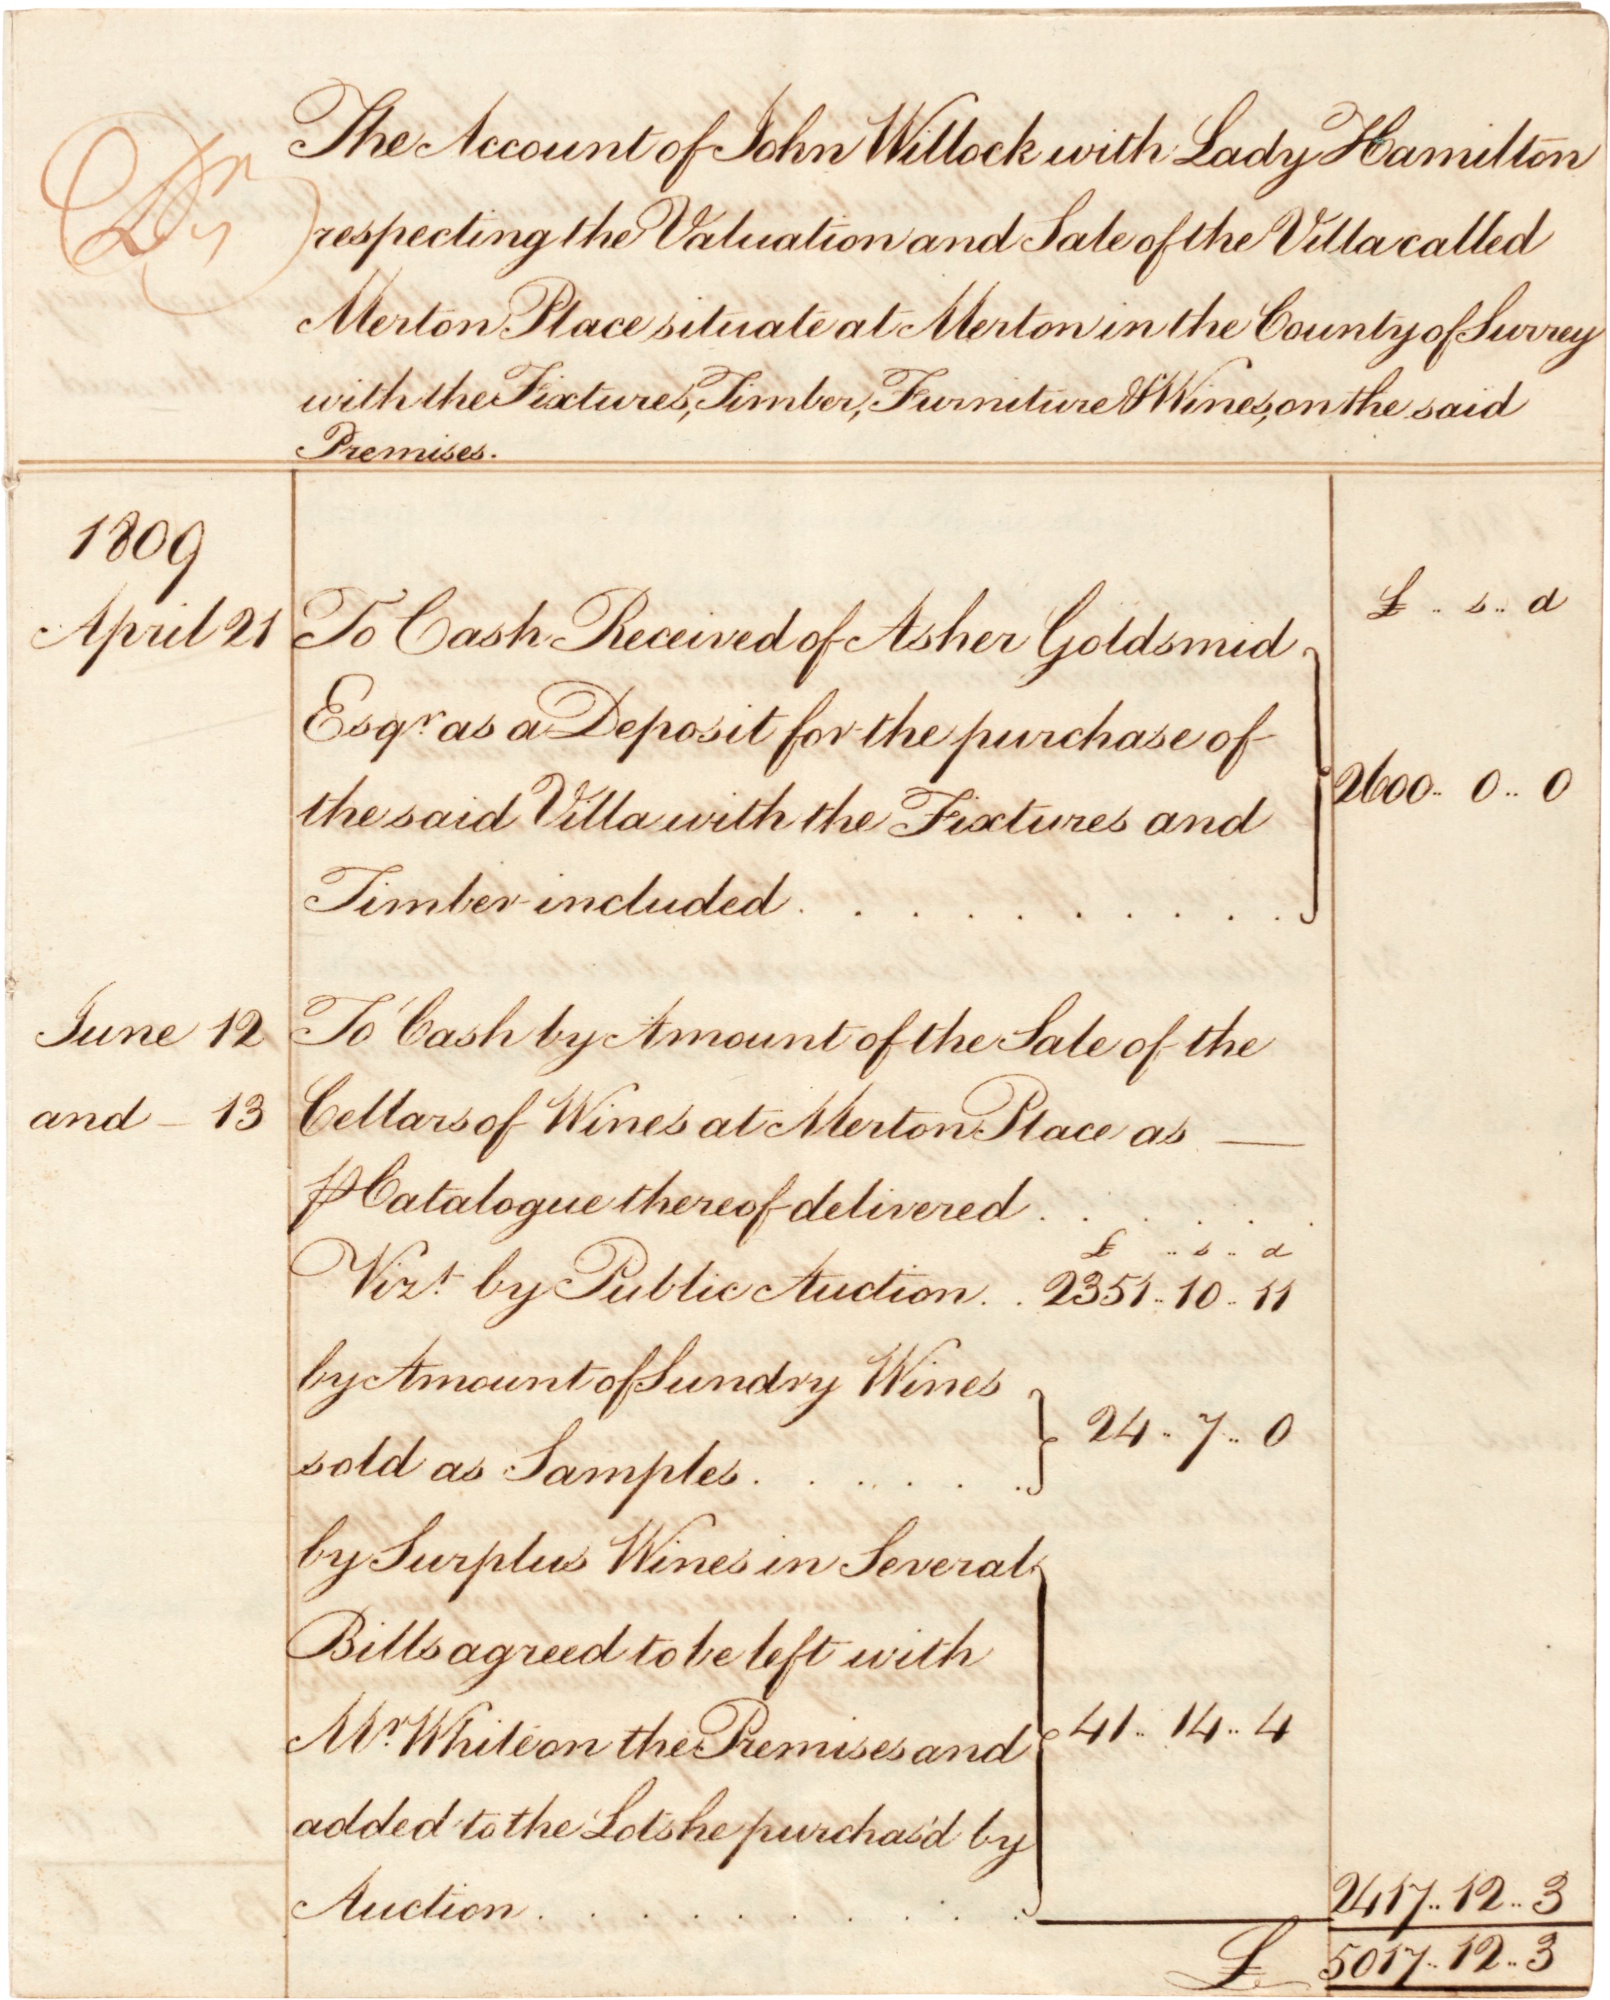 Dr
The Account of John Willock with Lady Hamilton
respecting the Valuation and Sale of the Villa called
Merton Place situate at Merton in the County of Surrey
with the Fixtures, Timber, Furniture & Wines, on the said
Premises.
1809
£ .. s .. d
April 21 To Cash Received of Asher Goldsmid
Esqr. as a Deposit for the purchase of
the said Villa with the Fixtures and 2600 .. 0 .. 0
Timber included . . . . . . . . . .
June 12 To Cash by Amount of the Sale of the
and – 13 Cellars of Wines at Merton Place as —
⅌ Catalogue thereof delivered . . . . . .
£ .. s .. d
Vizt. by Public Auction . . 2351 .. 10 .. 11
by Amount of Sundry Wines
24 .. 7 .. 0
sold as Samples . . . . . .
by Surplus Wines in Several
Bills agreed to be left with
Mr. White on the Premises and 41 .. 14 .. 4
added to the Lots he purchas'd by
Auction . . . . . . . . . . 2417 .. 12 .. 3
£ 5017 .. 12 .. 3